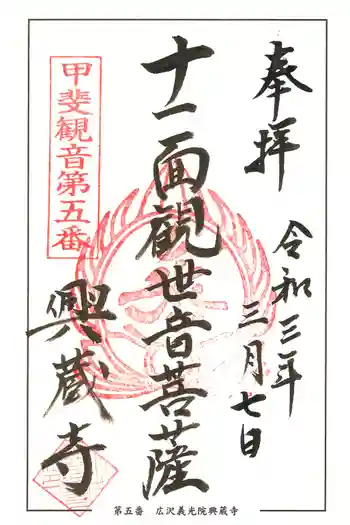 奉拝
令和三年
三月七日
十一面観世音菩薩
甲斐観音第五番
興蔵寺
第五番 広沢義光院興蔵寺